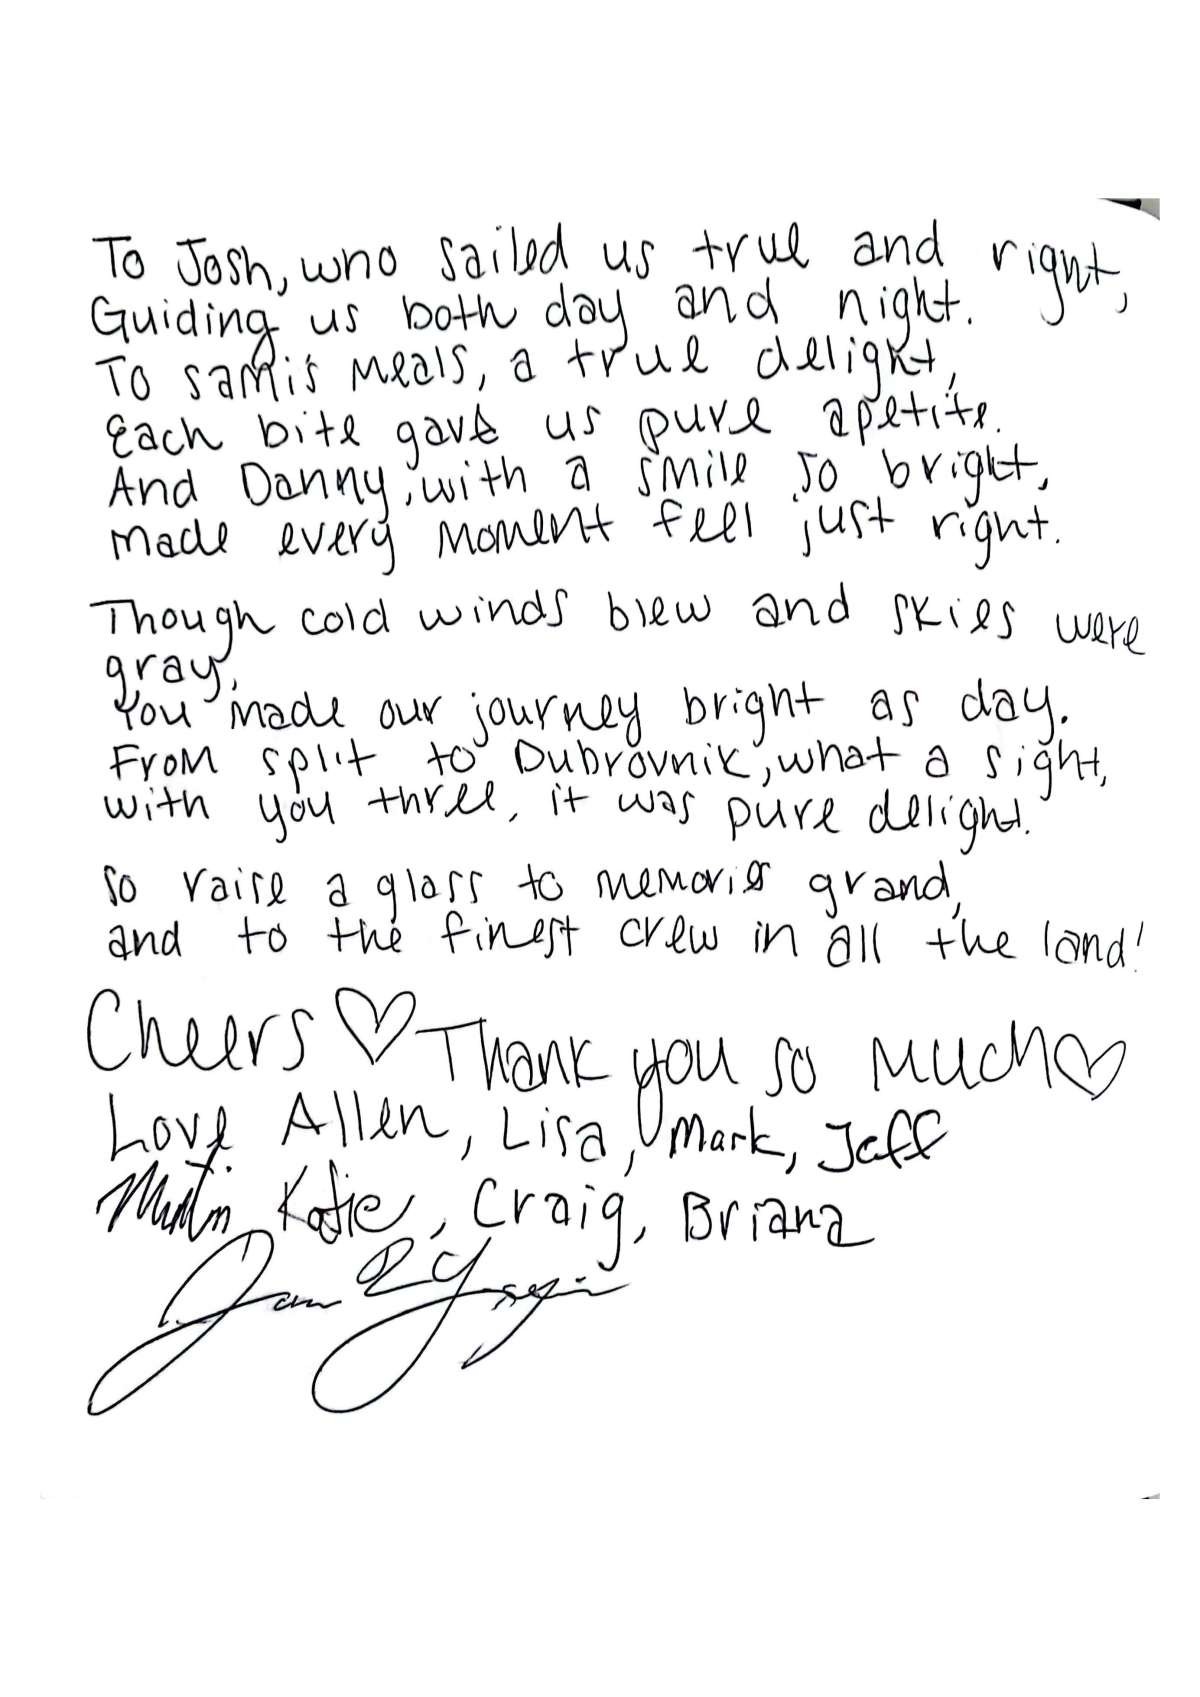 To Josh, who sailed us true and right,
Guiding us both day and night.
To sami's meals, a true delight,
Each bite gave us pure apetite.
And Danny, with a smile so bright,
made every moment feel just right.
Though cold winds blew and skies were
gray,
You made our journey bright as day.
From split to Dubrovnik, what a sight,
with you three, it was pure delight.
So raise a glass to memories grand,
and to the finest crew in all the land!
Cheers ♡ Thank you so much ♡
Love Allen, Lisa, Mark, Jeff
Katie, Craig, Briana